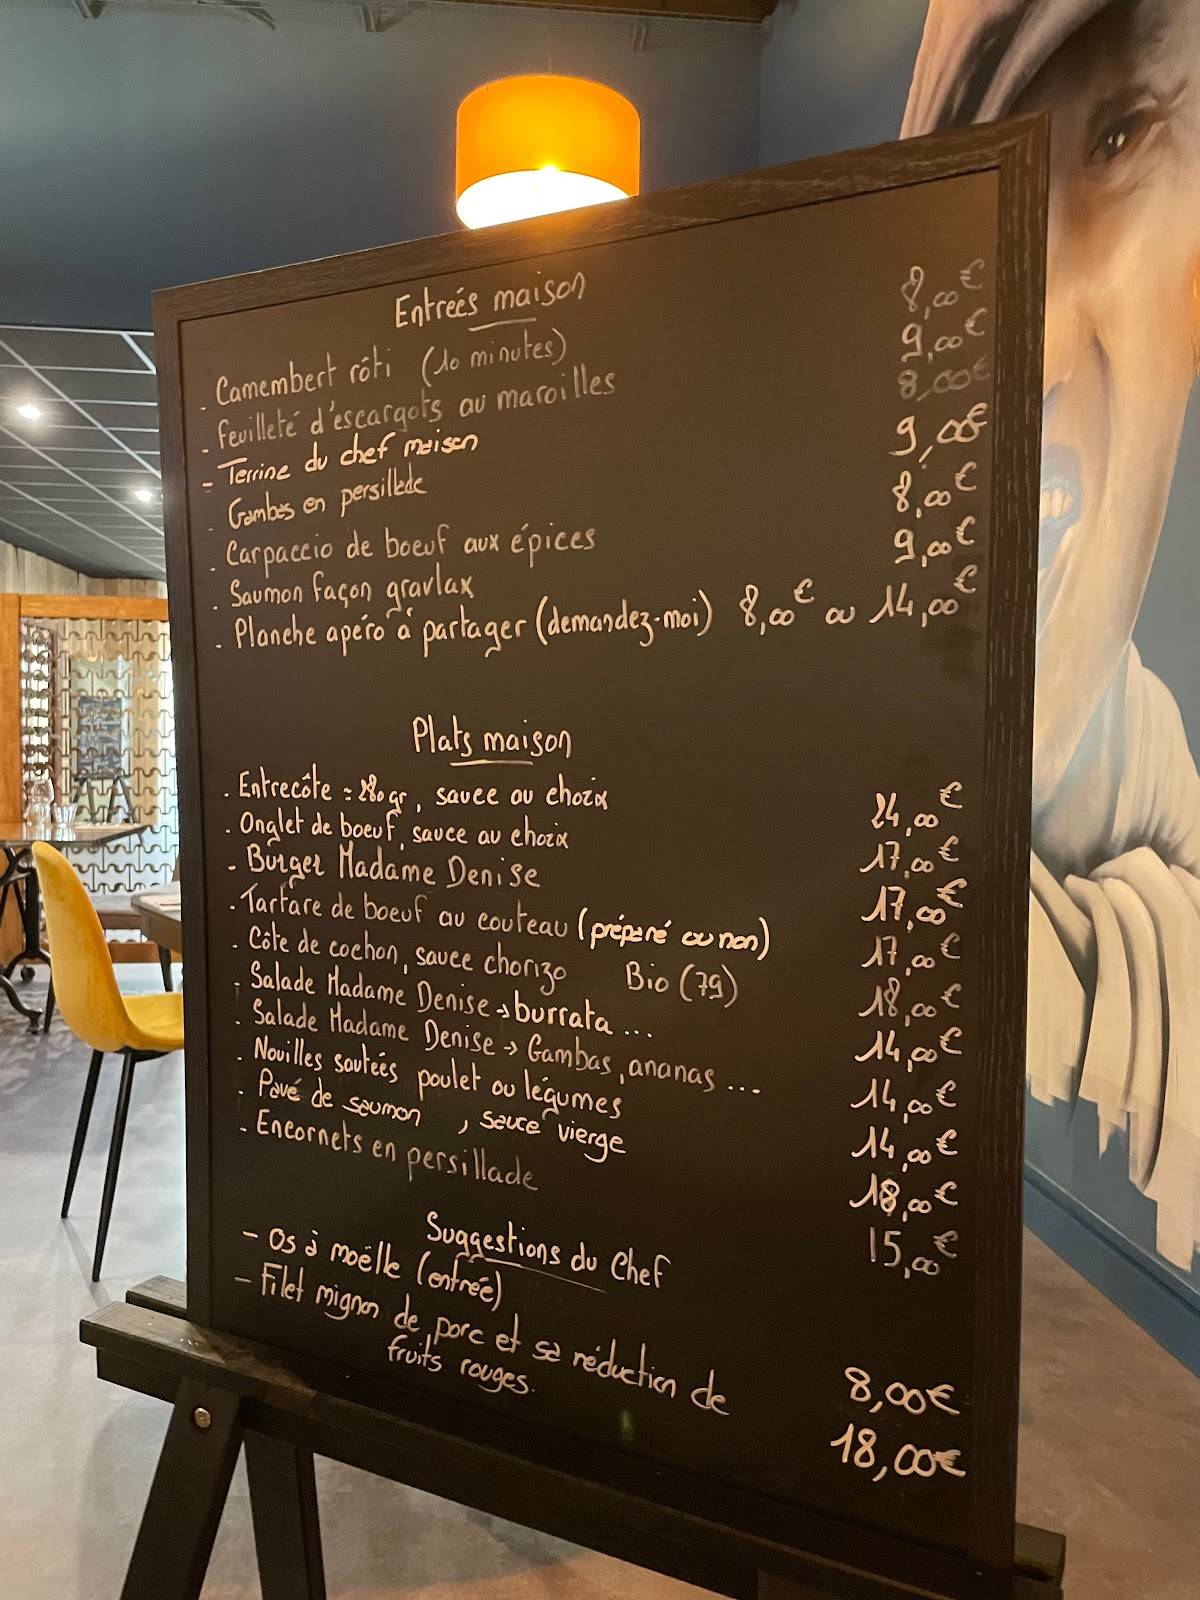 Entreés maison
. Camembert rôti (10 minutes) 8,00€
. feuilleté d'escargots au maroilles 9,00€
- Terrine du chef maison 8,00€
. Gambas en persillade 9,00€
. Carpaccio de boeuf aux épices 8,00€
. Saumon façon gravlax 9,00€
. Planche apéro à partager (demandez-moi) 8,00€ ou 14,00€
Plats maison
. Entrecôte = 280gr, sauce au choix 24,00€
. Onglet de boeuf, sauce au choix 17,00€
- Burger Madame Denise 17,00€
. Tartare de boeuf au couteau (préparé ou non) 17,00€
. Côte de cochon, sauce chorizo Bio (79) 18,00€
. Salade Madame Denise → burrata ... 14,00€
. Salade Madame Denise → Gambas, ananas ... 14,00€
. Nouilles sautéés poulet ou légumes 14,00€
. Pavé de saumon, sauce vierge 18,00€
. Encornets en persillade 15,00€
Suggestions du Chef
- Os à moëlle (entrée) 8,00€
- Filet mignon de porc et sa réduction de 18,00€
fruits rouges.